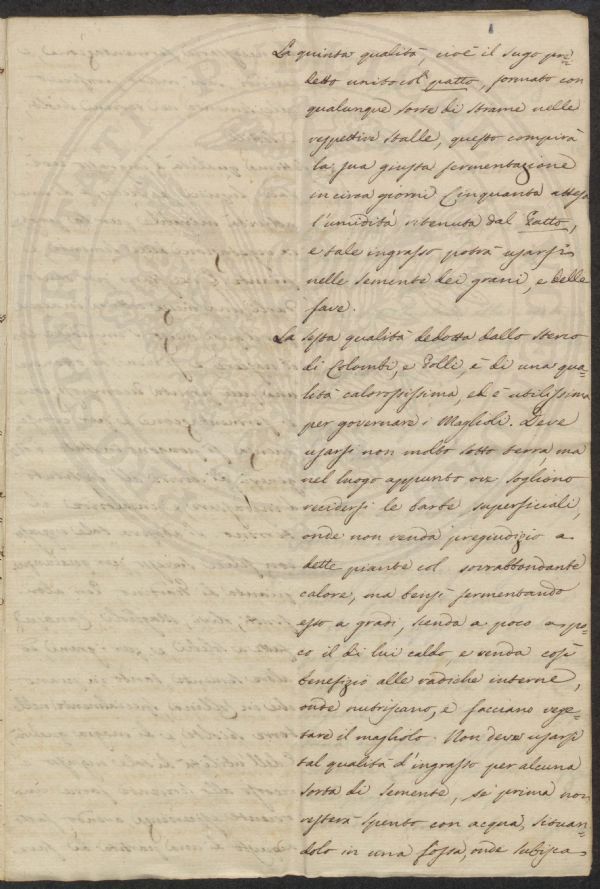 La quinta qualità, cioè il sugo pre=
detto unito col patto, formato con
qualunque sorte di strame nelle
respettive stalle, questo compirà
la sua giusta fermentazione
in circa giorni Cinquanta attesa
l'umidità ritenuta dal Patto,
e tale ingrasso potrà usarsi
nelle semente dei grani, e delle
fave.
La sesta qualità dedotta dallo sterco
di Colombi, e Polli, è di una qua=
lità calorosissima, ed è utilissima
per governare i Maglioli. Deve
usarsi non molto sotto terra ma
nel luogo appunto ove sogliono
recidersi le barbe superficiali,
onde non renda pregiudizio a
dette piante col sovrabbondante
calore, ma bensì fermentando
esso a gradi, scenda a poco a po=
co il di lui caldo, e renda così
benefizio alle radiche interne,
onde nutriscano, e facciano vege=
tare il magliolo. Non deve usarsi
tal qualità d'ingrasso per alcuna
sorta di semente, se prima non
resterà spento con acqua, situan=
dolo in una fossa, onde subisca